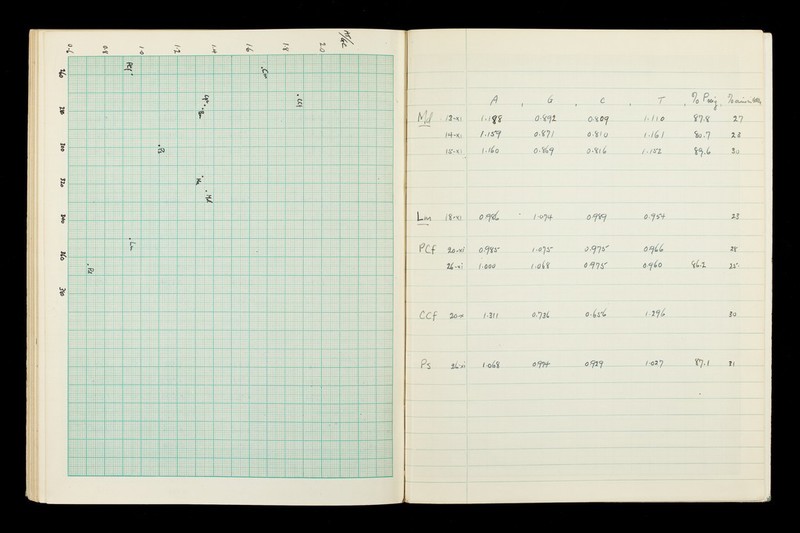 0.6 0.8 1.0 1.2 1.4 1.6 1.8 2.0
260
280
300
320
340
360
Pcf
Ps
Lm
A G C T
Md 13-xi 1.188 0.892 0.809 1.110 87.8 27
14-xi 1.159 0.871 0.810 1.161 80.7 28
15-xi 1.160 0.869 0.816 1.152 89.6 30
Lm 18-xi 0.986 1.074 0.989 0.954 28
PCf 20-xi 0.985 1.075 0.975 0.966 28
26-xi 1.000 1.068 0.975 0.960 96.2 25
CCf 20-xi 1.311 0.736 0.656 1.296 30
Ps 26-xi 1.068 0.974 0.929 1.027 87.1 31